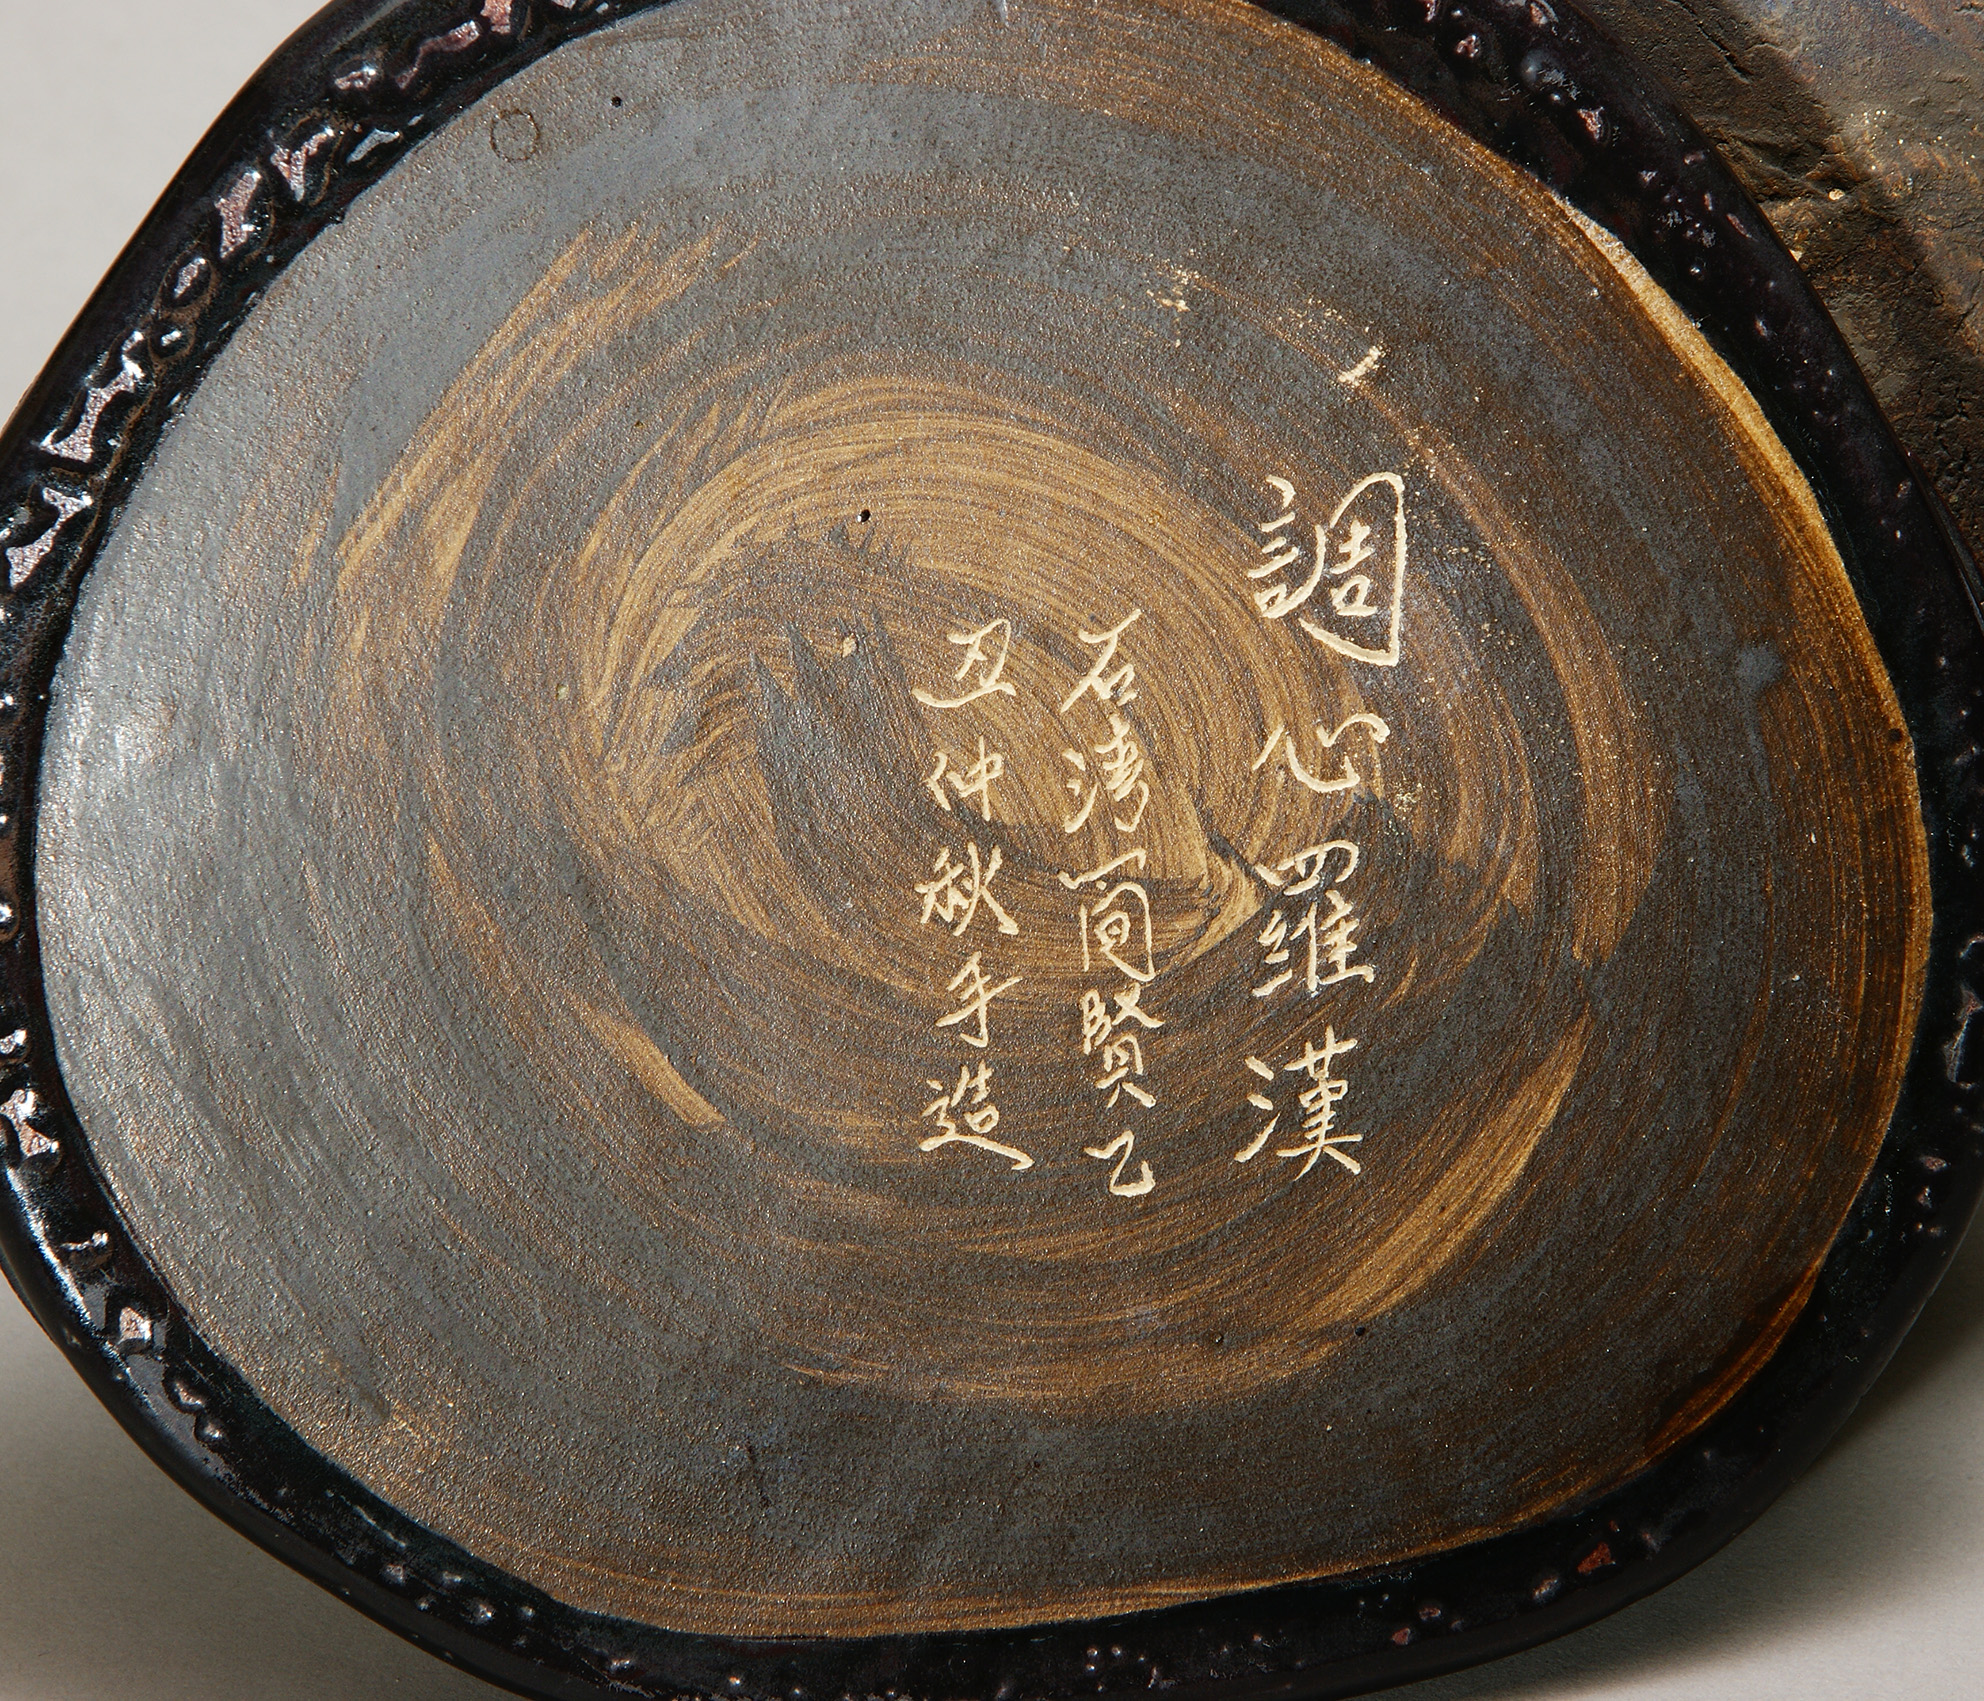 調心羅漢
石湾简賢乙
丑仲秋手造